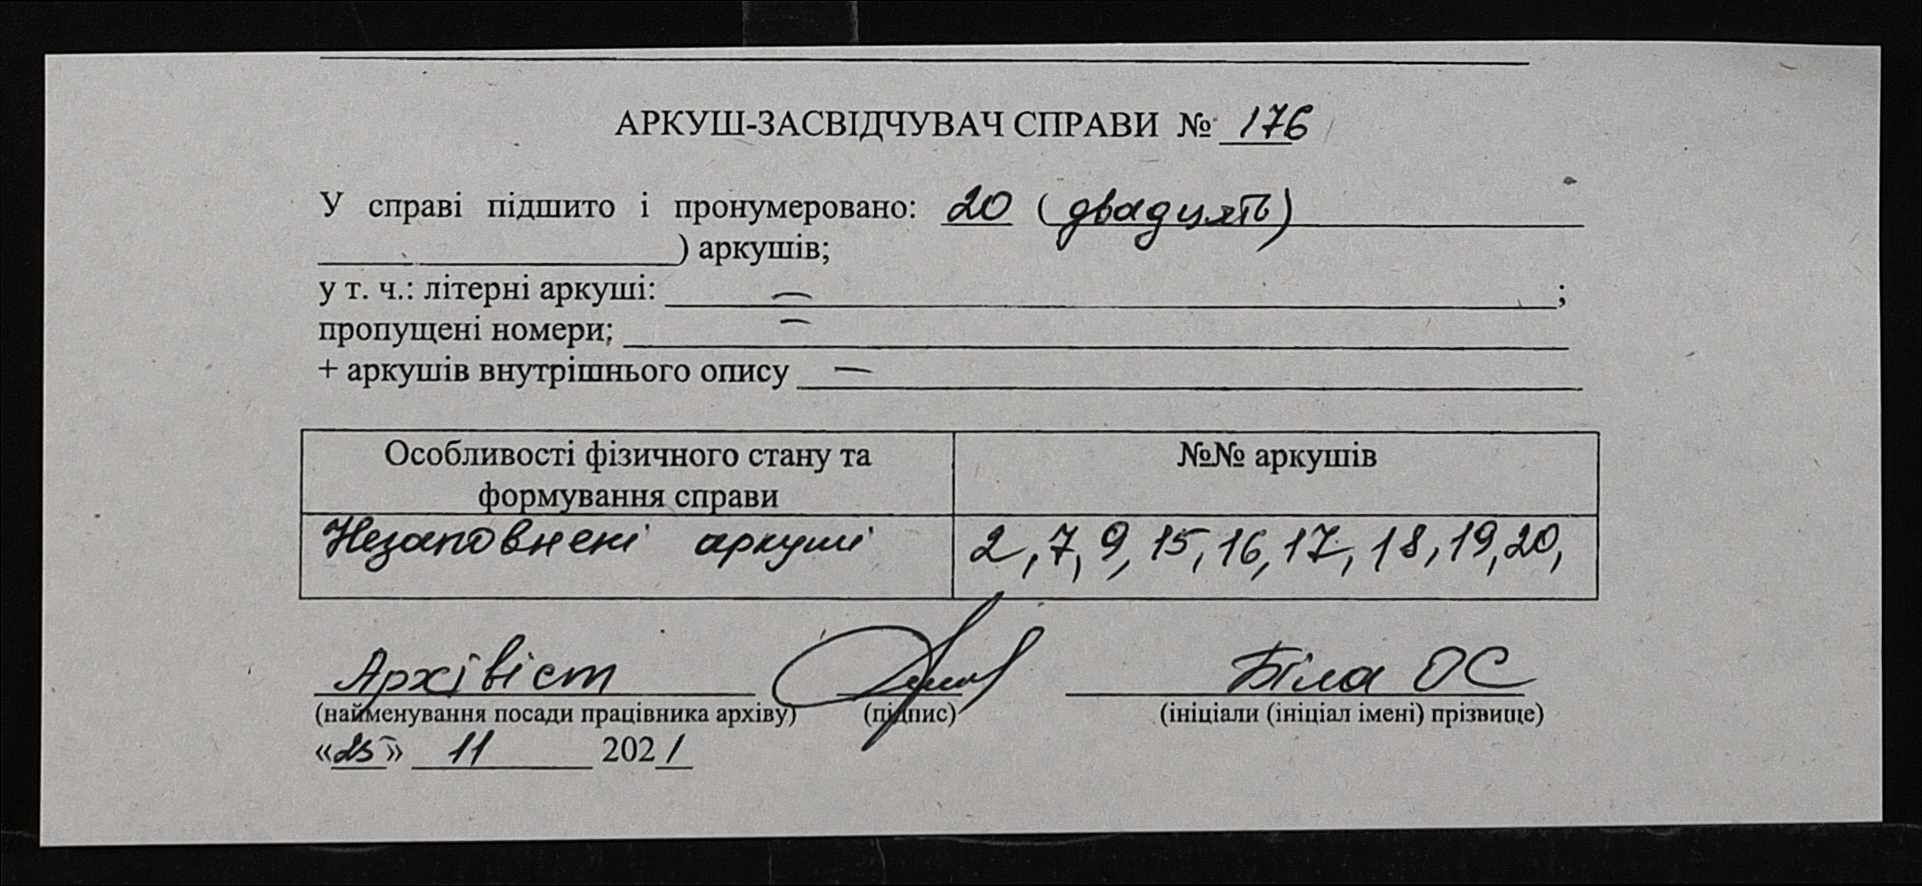 АРКУШ-ЗАСВІДЧУВАЧ СПРАВИ № 176
У справі підшито і пронумеровано: 20 (двадцять)
) аркушів;
у т. ч.: літерні аркуші: — ;
пропущені номери; —
+ аркушів внутрішнього опису —
Особливості фізичного стану та
формування справи
№№ аркушів
Незаповнені аркуші
2, 7, 9, 15, 16, 17, 18, 19, 20,
Архівіст Біла ОС
(найменування посади працівника архіву) (підпис) (ініціали (ініціал імені) прізвище)
«25» 11 2021